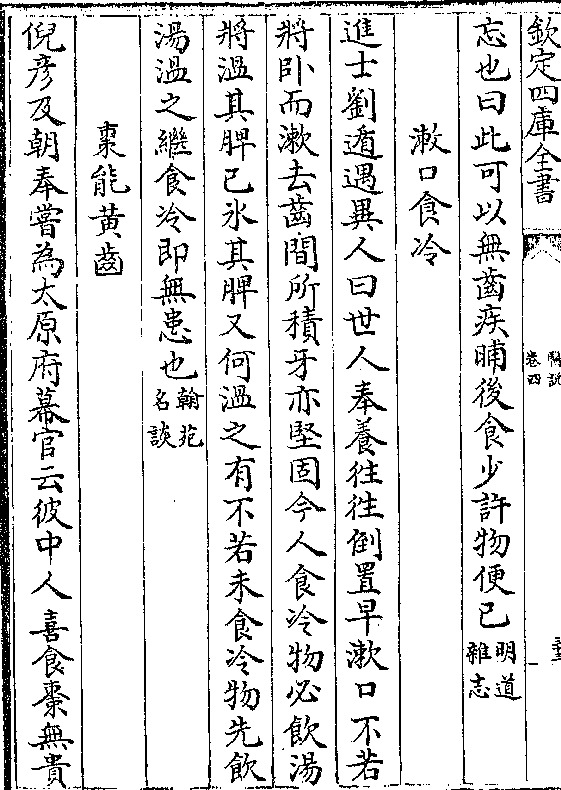 欽定四庫全書
醫說
卷四
忘也曰此可以無齒疾晡後食少許物便已明道雜志
漱口食冷
進士劉遁遇異人曰世人奉養往往倒置早漱口不若
將卧而漱去齒間所積牙亦堅固今人食冷物必飲湯
將溫其脾已氷其脾又何溫之有不若未食冷物先飲
湯溫之繼食冷即無患也翰苑名談
棗能黃齒
倪彥及朝奉嘗為太原府幕官云彼中人喜食棗無貴